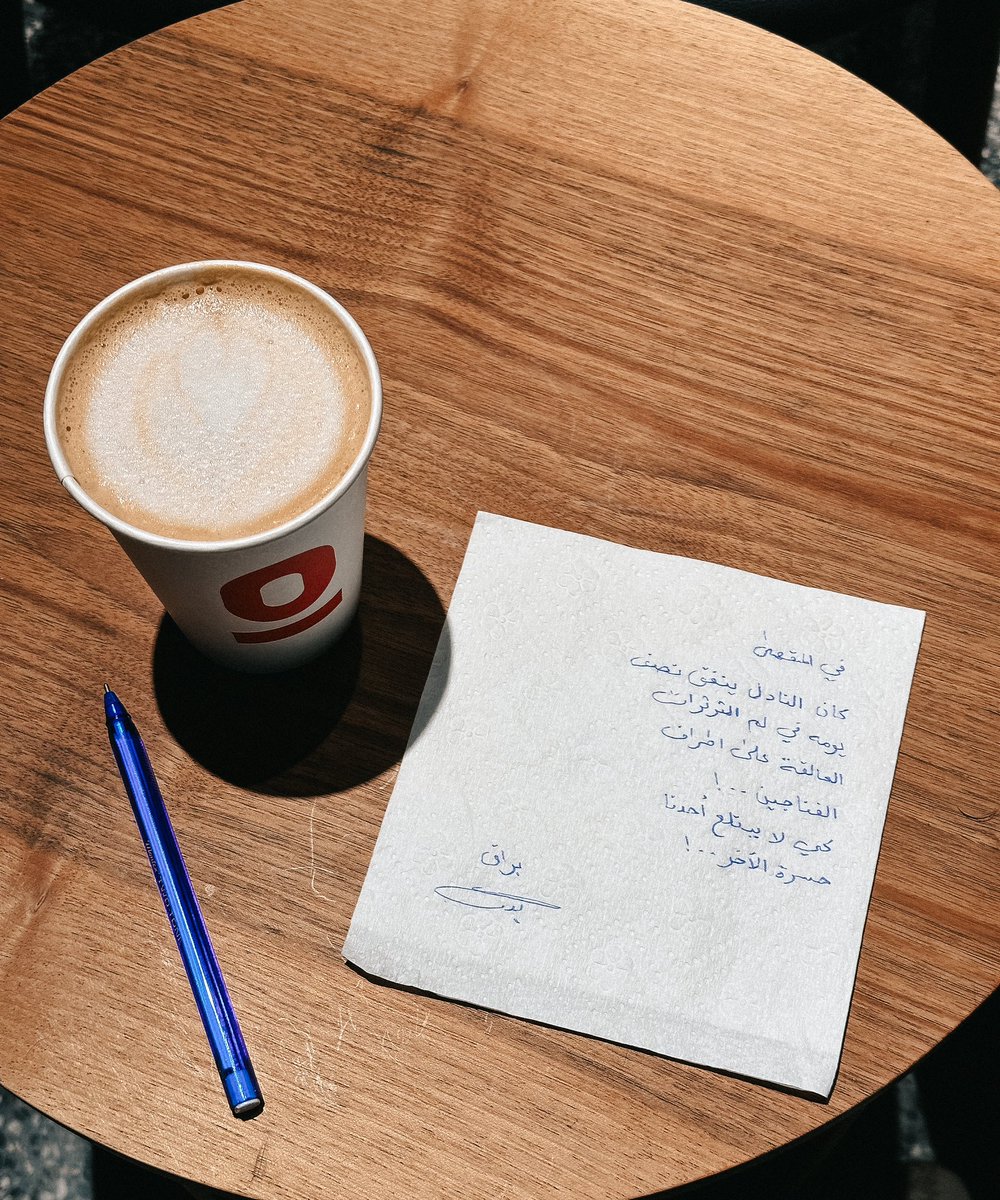 في المقهى
كان النادل ينفق نصف
يومه في لم الثرثرات
العالقة على اطراف
الفناجين...!
كي لا يبتلع أحدنا
حسرة الآخر...!
براق